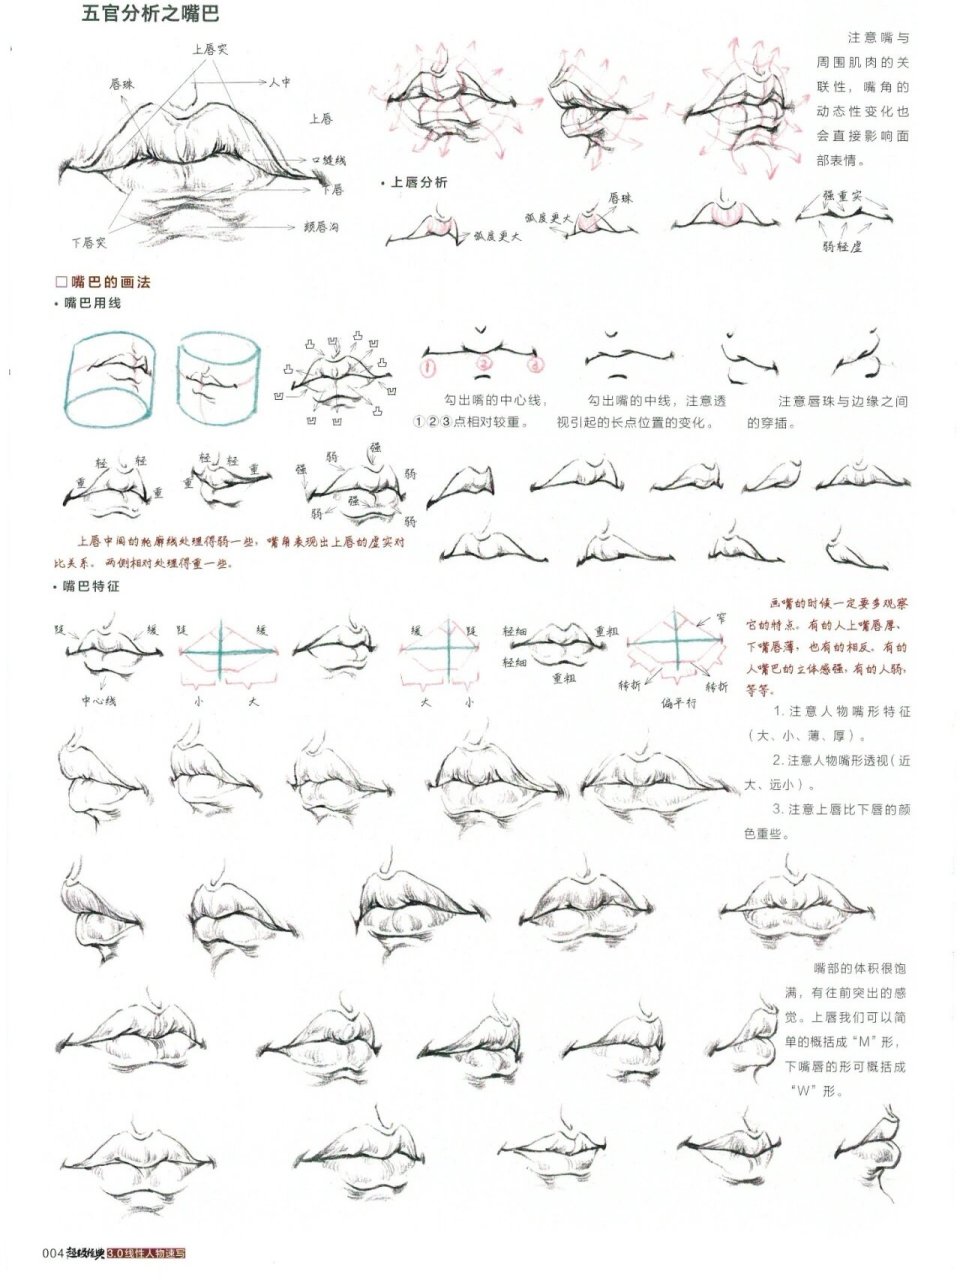 五官分析之嘴巴
上唇突
唇珠
人中
上唇
口缝线
下唇
颏唇沟
下唇突
注意嘴与
周围肌肉的关
联性，嘴角的
动态性变化也
会直接影响面
部表情。
·上唇分析
弧度更大
弧度更大
唇珠
强重实
弱轻虚
□嘴巴的画法
·嘴巴用线
凸
凹
凸
凹
凸
凸
凹
凹
凸
凹
凹
① ② ③
勾出嘴的中心线，
①②③点相对较重。
勾出嘴的中线，注意透
视引起的长点位置的变化。
注意唇珠与边缘之间
的穿插。
轻 轻
重 重
轻 轻
重 重
强
弱
强 弱
强
弱 弱
上唇中间的轮廓线处理得弱一些，嘴角表现出上唇的虚实对
比关系。两侧相对处理得重一些。
·嘴巴特征
陡 缓
中心线
陡 缓
小 大
缓 陡
大 小
轻细 重粗
轻细
重粗
窄
转折 转折
偏平行
画嘴的时候一定要多观察
它的特点。有的人上嘴唇厚、
下嘴唇薄，也有的相反。有的
人嘴巴的立体感强，有的人弱，
等等。
1.注意人物嘴形特征
（大、小、薄、厚）。
2.注意人物嘴形透视（近
大、远小）。
3.注意上唇比下唇的颜
色重些。
嘴部的体积很饱
满，有往前突出的感
觉。上唇我们可以简
单的概括成“M”形，
下嘴唇的形可概括成
“W”形。
004 超级经典 3.0线性人物速写